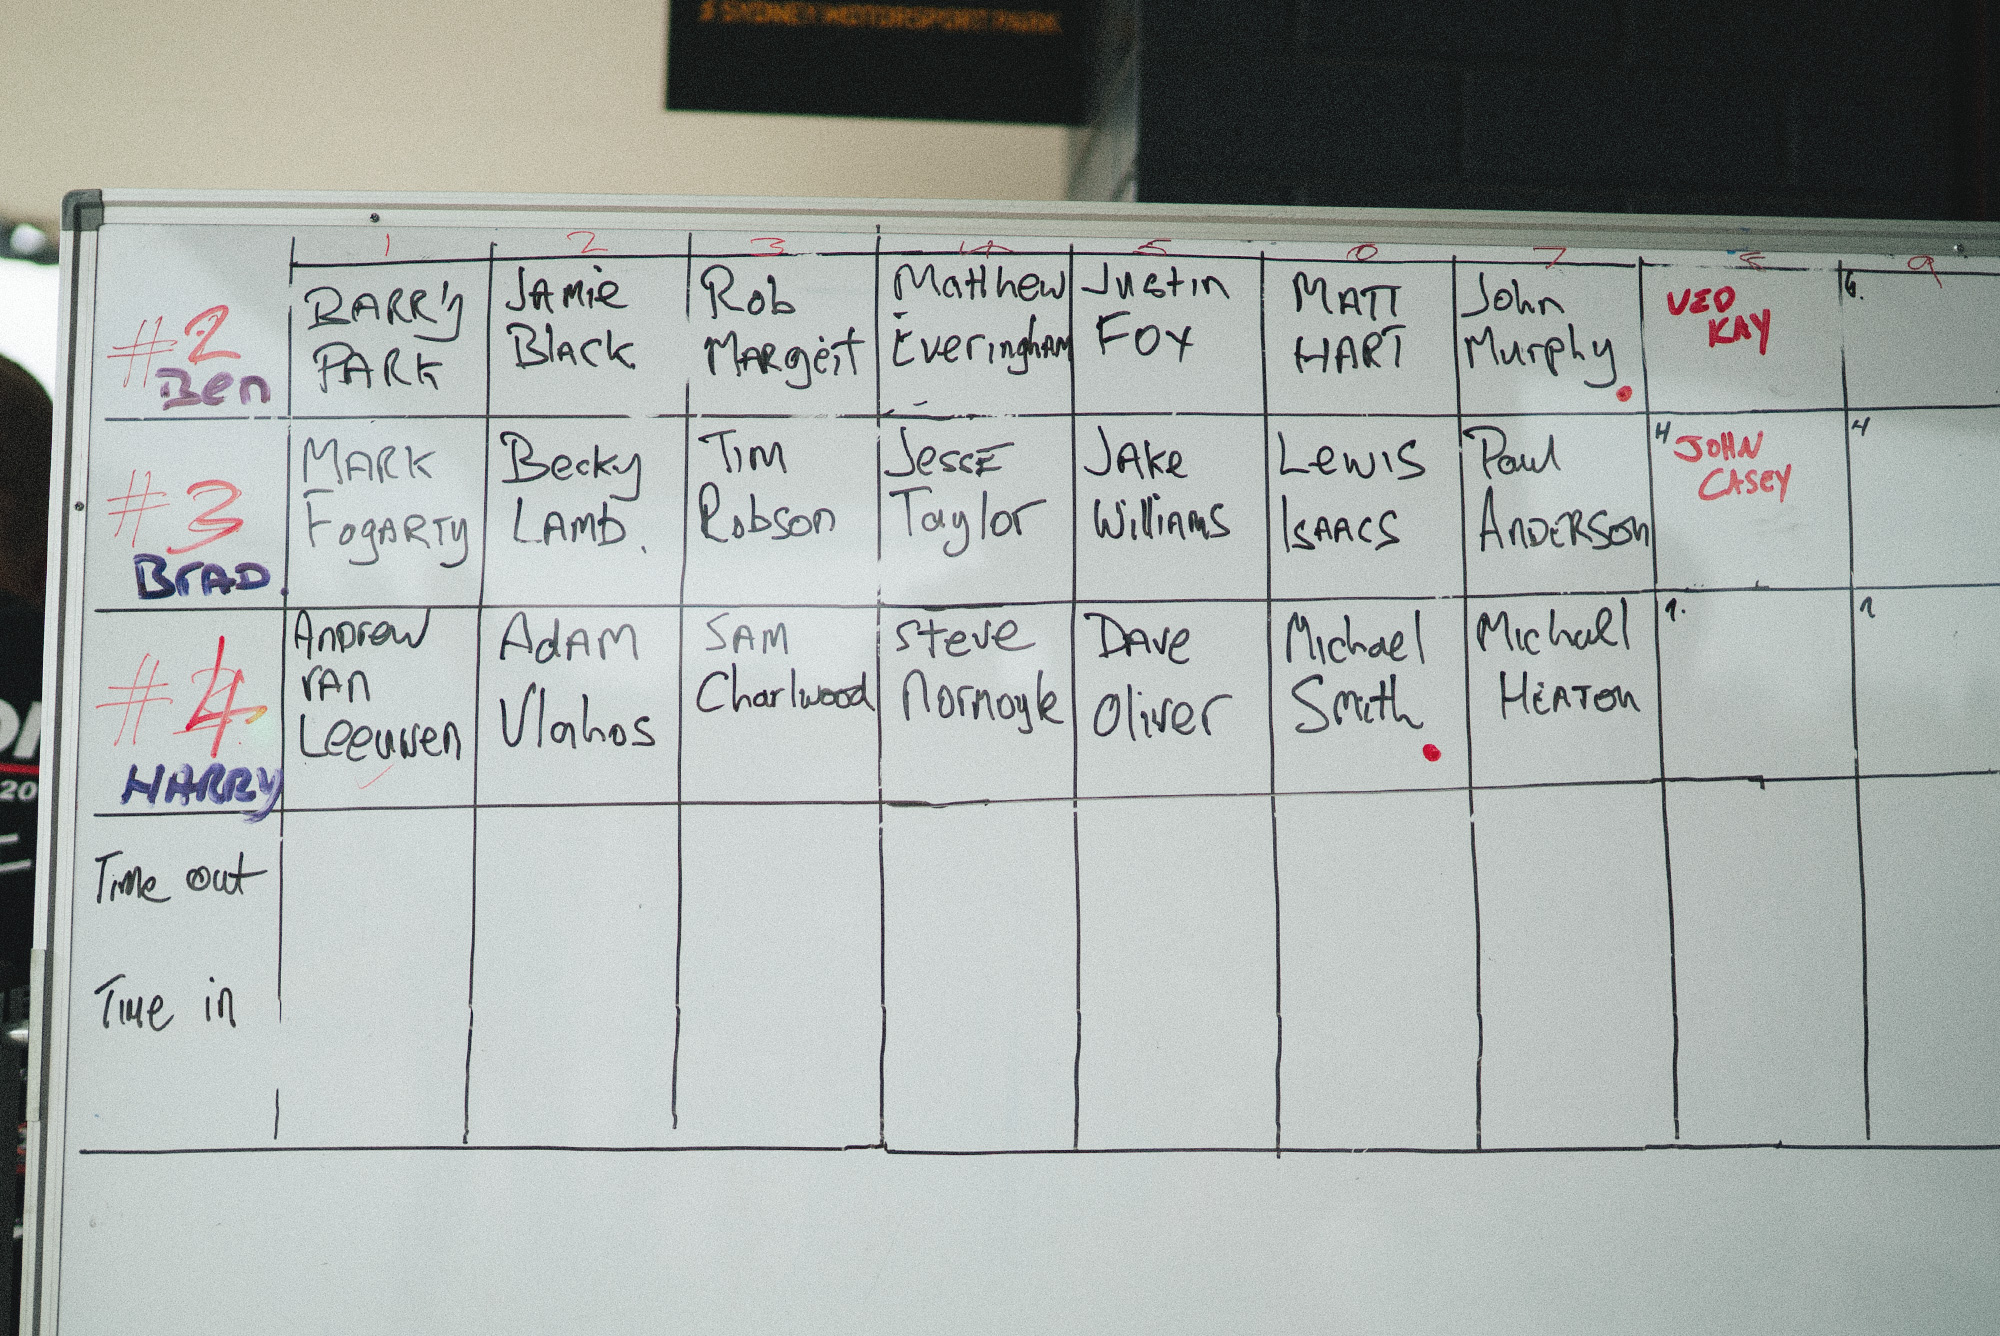 SYDNEY MOTORSPORT PARK
1 2 3 4 5 6 7 8 9
#2 Ben
BARRY PARK
JAMIE Black
Rob MARGEIT
Matthew Everingham
Justin FOX
MATT HART
John Murphy
VED KAY
6.
#3 BrAD.
MARK FogARTY
Becky LAMB.
TIM Robson
JESSE Taylor
JAKe Williams
Lewis ISAACS
Paul ANDERSON
4 JOHN CASEY
4
#4 HARRY
Andrew van Leeuwen
AdAM Vlahos
SAM Charlwood
Steve Nornoyle
DAve Oliver
Michael Smith
Michael HEATON
Time out
Time in